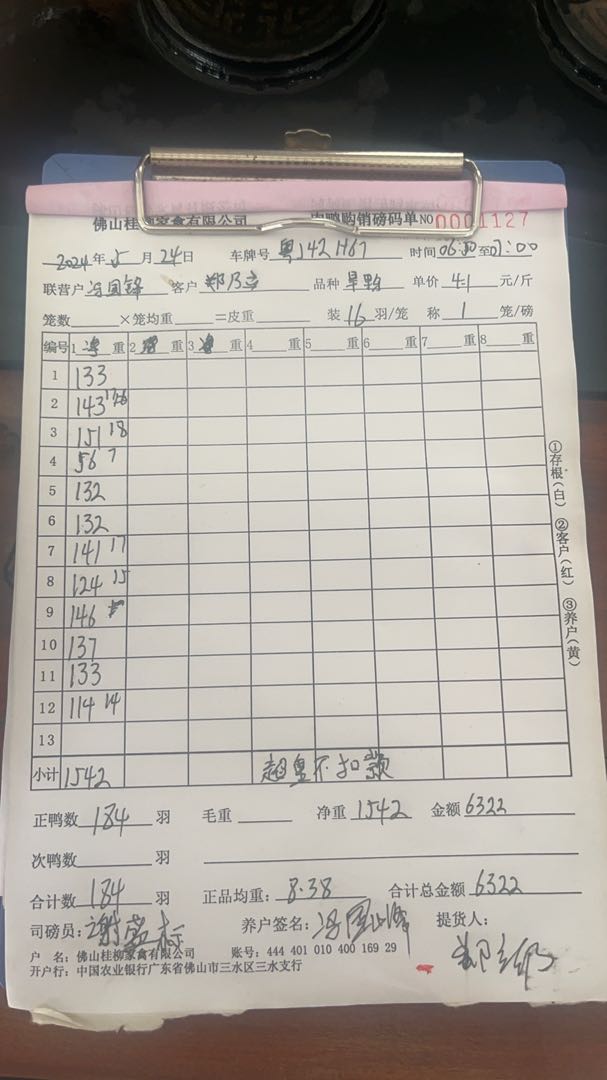 佛山桂柳家禽有限公司 肉鸭购销磅码单 NO 0001127
2024年5月24日 车牌号 粤J42H67 时间 06:30至07:00
联营户 冯国锋 客户 品种 单价 4.1 元/斤
笼数 ×笼均重 =皮重 装 16 羽/笼 称 1 笼/磅
编号 1 重 2 重 3 重 4 重 5 重 6 重 7 重 8 重
1 133
2 143
3 151 18
4 56 7
5 132
6 132
7 141 17
8 124 15
9 146
10 137
11 133
12 114 14
13
小计 1542 超重不扣款
正鸭数 184 羽 毛重 净重 1542 金额 6322
次鸭数 羽
合计数 184 羽 正品均重: 8.38 合计总金额 6322
司磅员: 谢 标 养户签名: 冯国锋 提货人:
户 名: 佛山桂柳家禽有限公司 账号: 444 401 010 400 169 29
开户行: 中国农业银行广东省佛山市三水区三水支行
①存根(白) ②客户(红) ③养户(黄)